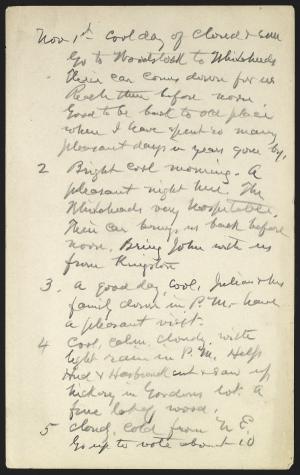 Nov 1st Cool day of cloud & sun
Go to Woodstock to Whiteheads
Their car comes down for us
Reach there before noon.
Good to be back to old place
where I have spent so many
pleasant days in years gone by.
2 Bright cool morning. A
pleasant night here. The
Whiteheads very hospitable.
Their car brings us back before
noon. Bring John with us
from Kingston
3. A good day, cool, Julian & his
family down in P.M. have
a pleasant visit.
4 Cool, calm, cloudy, with
light rain in P.M. Help
Hud & Hasbrouck cut & saw up
hickory in Gordons lot. A
fine lot of wood.
5 Cloud, cold from N.E.
Go up to vote about 10